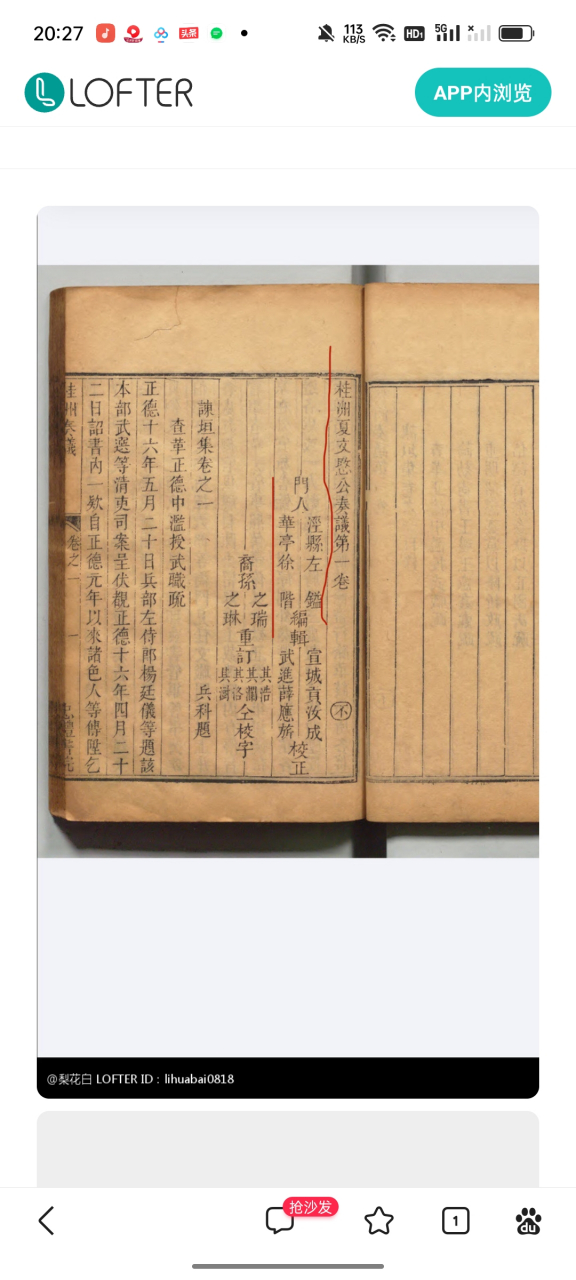 20:27
113 KB/S
HD1
5G
LOFTER
APP内浏览
桂洲夏文愍公奏議第一卷
門人
涇縣左鎰
華亭徐階
編輯
宣城貢汝成
武進薛應旂
校正
裔孫
之瑞
之琳
重訂
其浩
其洛
仝校字
諫垣集卷之一
兵科題
查革正德中濫授武職疏
正德十六年五月二十日兵部左侍郎楊廷儀等題該
本部武選等清吏司案呈伏覩正德十六年四月二十
二日詔書內一欵自正德元年以來諸色人等傳陞乞
桂洲奏議
卷之一
@梨花白 LOFTER ID：lihuabai0818
抢沙发
1
du